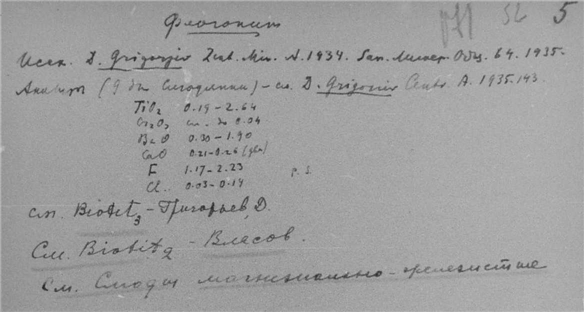 Флогопит 52 5
D. Grigorjev Zent. Min. A. 1934. Зап. Минер. Общ. 64. 1935.
Анализы (9 для Слюдянки) – см. D. Grigoriev Centr. A. 1935. 143.
TiO2 0.19 - 2.64
Cr2O3 сл. до 0.04
BaO 0.30 - 1.90
CaO 0.21 - 0.26 (два)
F 1.17 - 2.23
Cl 0.03 - 0.14
см. Biotit3 - Григорьев, Д.
См. Biotit2 - Власов.
См. Слюды магнезиально-железистые